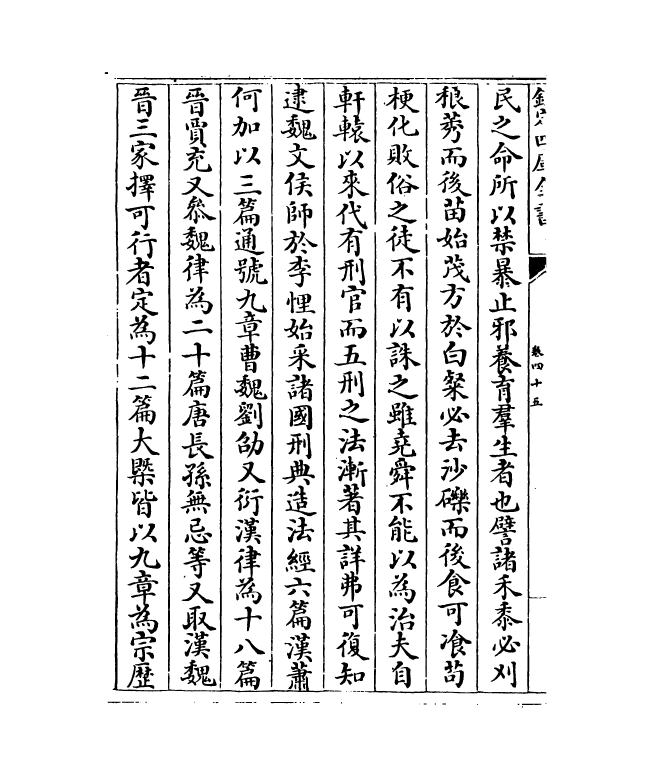 欽定四庫全書
卷四十五
民之命所以禁暴止邪養育羣生者也譬諸禾黍必刈
稂莠而後苗始茂方於白粲必去沙礫而後食可飡苟
梗化敗俗之徒不有以誅之雖堯舜不能以為治夫自
軒轅以來代有刑官而五刑之法漸著其詳弗可復知
逮魏文侯師於李悝始采諸國刑典造法經六篇漢蕭
何加以三篇通號九章曹魏劉劭又衍漢律為十八篇
晉賈充又叅魏律為二十篇唐長孫無忌等又取漢魏
晉三家擇可行者定為十二篇大槩皆以九章為宗歴